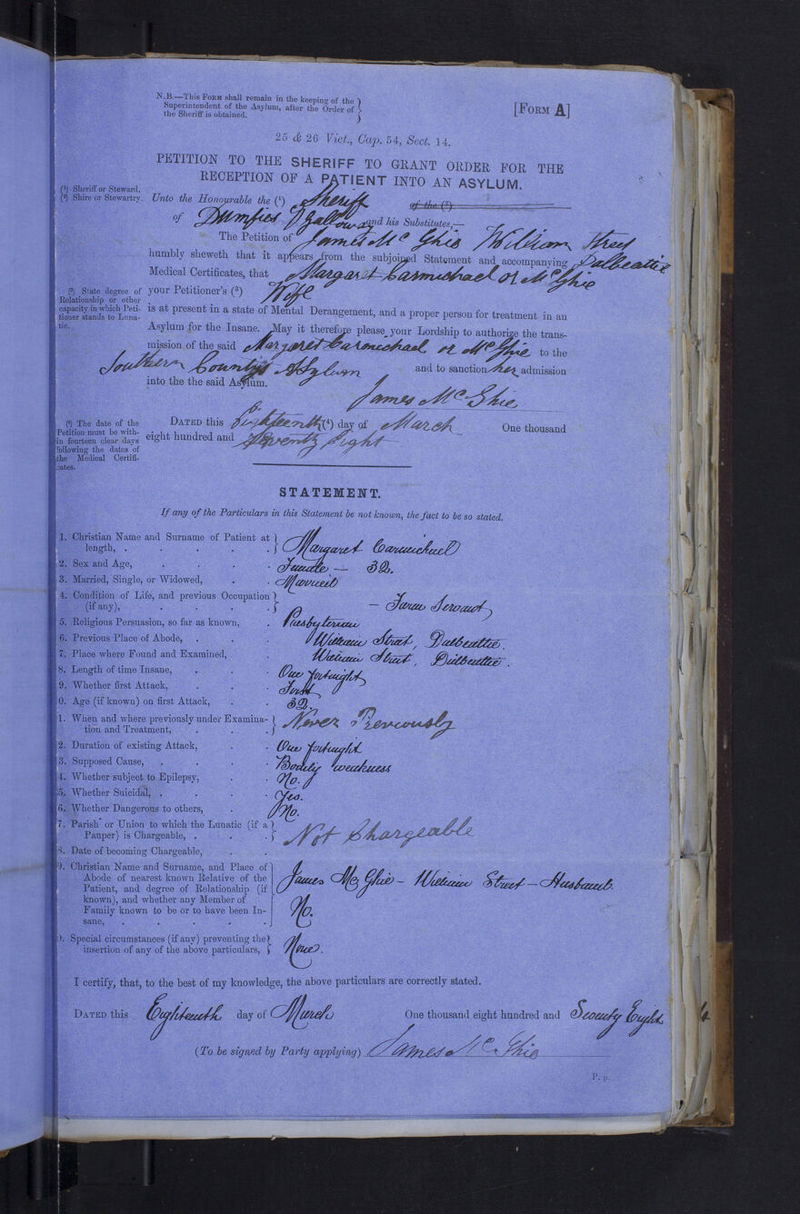 N.B.—This FORM shall remain in the keeping of the
Superintendent of the Asylum, after the Order of
the Sheriff is obtained.
[FORM A]
25 & 26 Vict., Cap. 54, Sect. 14.
PETITION TO THE SHERIFF TO GRANT ORDER FOR THE
RECEPTION OF A PATIENT INTO AN ASYLUM.
(¹) Sheriff or Steward.
(²) Shire or Stewartry.
Unto the Honourable the (¹) Sheriff of the (²)
of Dumfries & Galloway and his Substitutes,—
The Petition of James McGhie William Street
humbly sheweth that it appears from the subjoined Statement and accompanying Dalbeattie
Medical Certificates, that Margaret Carmichael or McGhie
(³) State degree of
Relationship or other
capacity in which Peti-
tioner stands to Luna-
tic.
your Petitioner's (³) Wife
is at present in a state of Mental Derangement, and a proper person for treatment in an
Asylum for the Insane. May it therefore please your Lordship to authorize the trans-
mission of the said Margaret Carmichael or McGhie to the
Southern Countys Asylum and to sanction her admission
into the the said Asylum.
James McGhie
(⁴) The date of the
Petition must be with-
in fourteen clear days
following the dates of
the Medical Certifi-
cates.
DATED this Eighteenth (⁴) day of March One thousand
eight hundred and Seventy Eight
STATEMENT.
If any of the Particulars in this Statement be not known, the fact to be so stated.
1. Christian Name and Surname of Patient at
length, . . . . . Margaret Carmichael
2. Sex and Age, . . . . Female — 32.
3. Married, Single, or Widowed, . . Married
4. Condition of Life, and previous Occupation
(if any), . . . . — Farm Servant
5. Religious Persuasion, so far as known, . Presbyterian
6. Previous Place of Abode, . . . William Street, Dalbeattie.
7. Place where Found and Examined, . William Street, Dalbeattie.
8. Length of time Insane, . . . One fortnight
9. Whether first Attack, . . . First
0. Age (if known) on first Attack, . . 32.
1. When and where previously under Examina-
tion and Treatment, . . . Never Previously
2. Duration of existing Attack, . . One fortnight
3. Supposed Cause, . . . . Bodily weakness
4. Whether subject to Epilepsy, . . No.
5. Whether Suicidal, . . . . Yes.
6. Whether Dangerous to others, . . No.
7. Parish or Union to which the Lunatic (if a
Pauper) is Chargeable, . . . Not Chargeable
8. Date of becoming Chargeable, . .
9. Christian Name and Surname, and Place of
Abode of nearest known Relative of the
Patient, and degree of Relationship (if
known), and whether any Member of
Family known to be or to have been In-
sane, . . . . .
James McGhie – William Street – Husband.
No.
0. Special circumstances (if any) preventing the
insertion of any of the above particulars, None.
I certify, that, to the best of my knowledge, the above particulars are correctly stated.
DATED this Eighteenth day of March One thousand eight hundred and Seventy Eight
(To be signed by Party applying) James McGhie